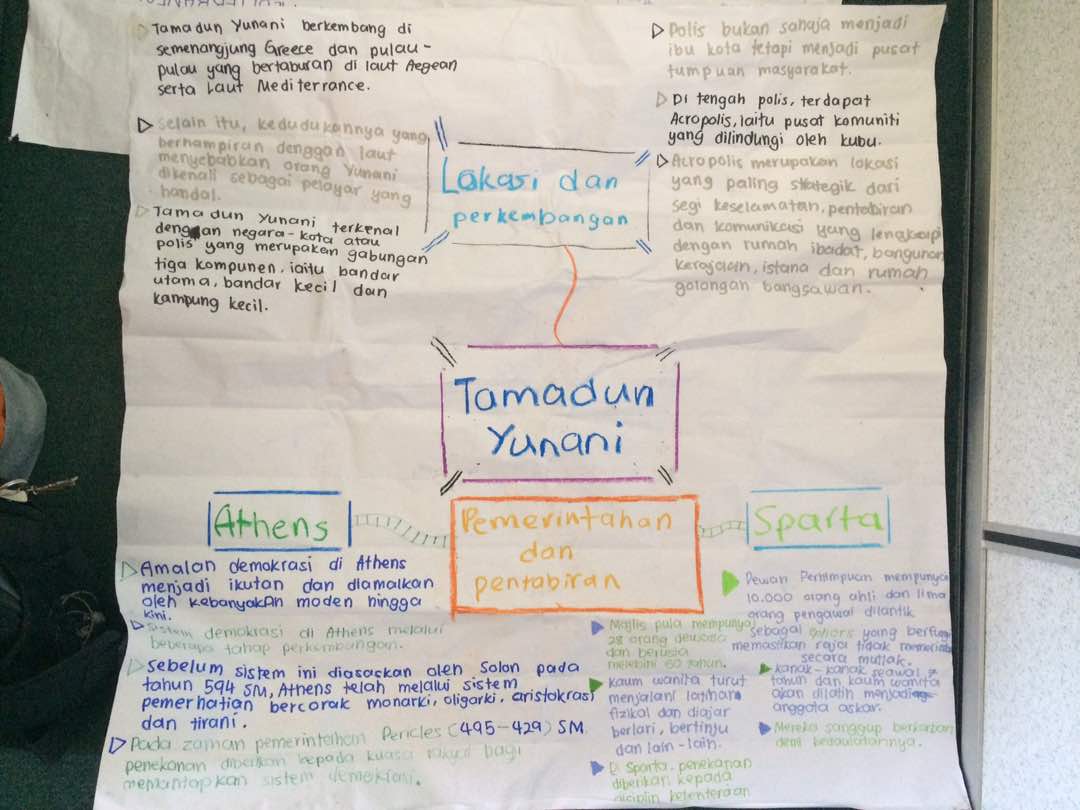 Tamadun Yunani berkembang di
semenangjung Greece dan pulau-
pulau yang bertaburan di laut Aegean
serta Laut Mediterrance.
Selain itu, kedudukannya yang
berhampiran denggan laut
menyebabkan orang Yunani
dikenali sebagai pelayar yang
handal.
Tamadun Yunani terkenal
dengan negara-kota atau
polis yang merupakan gabungan
tiga kompunen, iaitu bandar
utama, bandar kecil dan
kampung kecil.
Lokasi dan
perkembangan
Polis bukan sahaja menjadi
ibu kota tetapi menjadi pusat
tumpuan masyarakat.
Di tengah polis, terdapat
Acropolis, iaitu pusat komuniti
yang dilindungi oleh kubu.
Acropolis merupakan lokasi
yang paling strategik dari
segi keselamatan, pentabiran
dan komunikasi yang lengkapi
dengan rumah ibadat, bangunan
kerajaan, istana dan rumah
golongan bangsawan.
Tamadun
Yunani
Pemerintahan
dan
pentabiran
Athens
Amalan demokrasi di Athens
menjadi ikutan dan diamalkan
oleh kebanyakan moden hingga
kini.
Sistem demokrasi di Athens melalui
beberapa tahap perkembangan.
Sebelum sistem ini diasaskan oleh Solon pada
tahun 594 SM, Athens telah melalui sistem
pemerhatian bercorak monarki, oligarki, aristokrasi
dan tirani.
Pada zaman pemerintahan Pericles (495-429) SM
penekanan diberikan kepada kuasa rakyat bagi
memantapkan sistem demokrasi.
Sparta
Dewan Perhimpuan mempunyai
10.000 orang ahli dan lima
orang pengawal dilantik
sebagai yang berfungsi
memastikan raja tidak memerintah
secara mutlak.
Majlis pula mempunyai
28 orang dewasa
dan berusia
melebihi 60 tahun.
kaum wanita turut
menjalani latihan
fizikal dan diajar
berlari, bertinju
dan lain-lain.
Di Sparta, penekanan
diberikan kepada
disiplin ketenteraan
kanak-kanak seawal 7
tahun dan kaum wanita
akan dilatih menjadi
anggota askar.
Mereka sanggup berkorban
demi kedaulatannya.